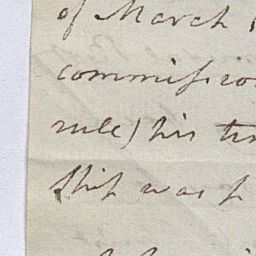 of March
commission
rule) his
ship was